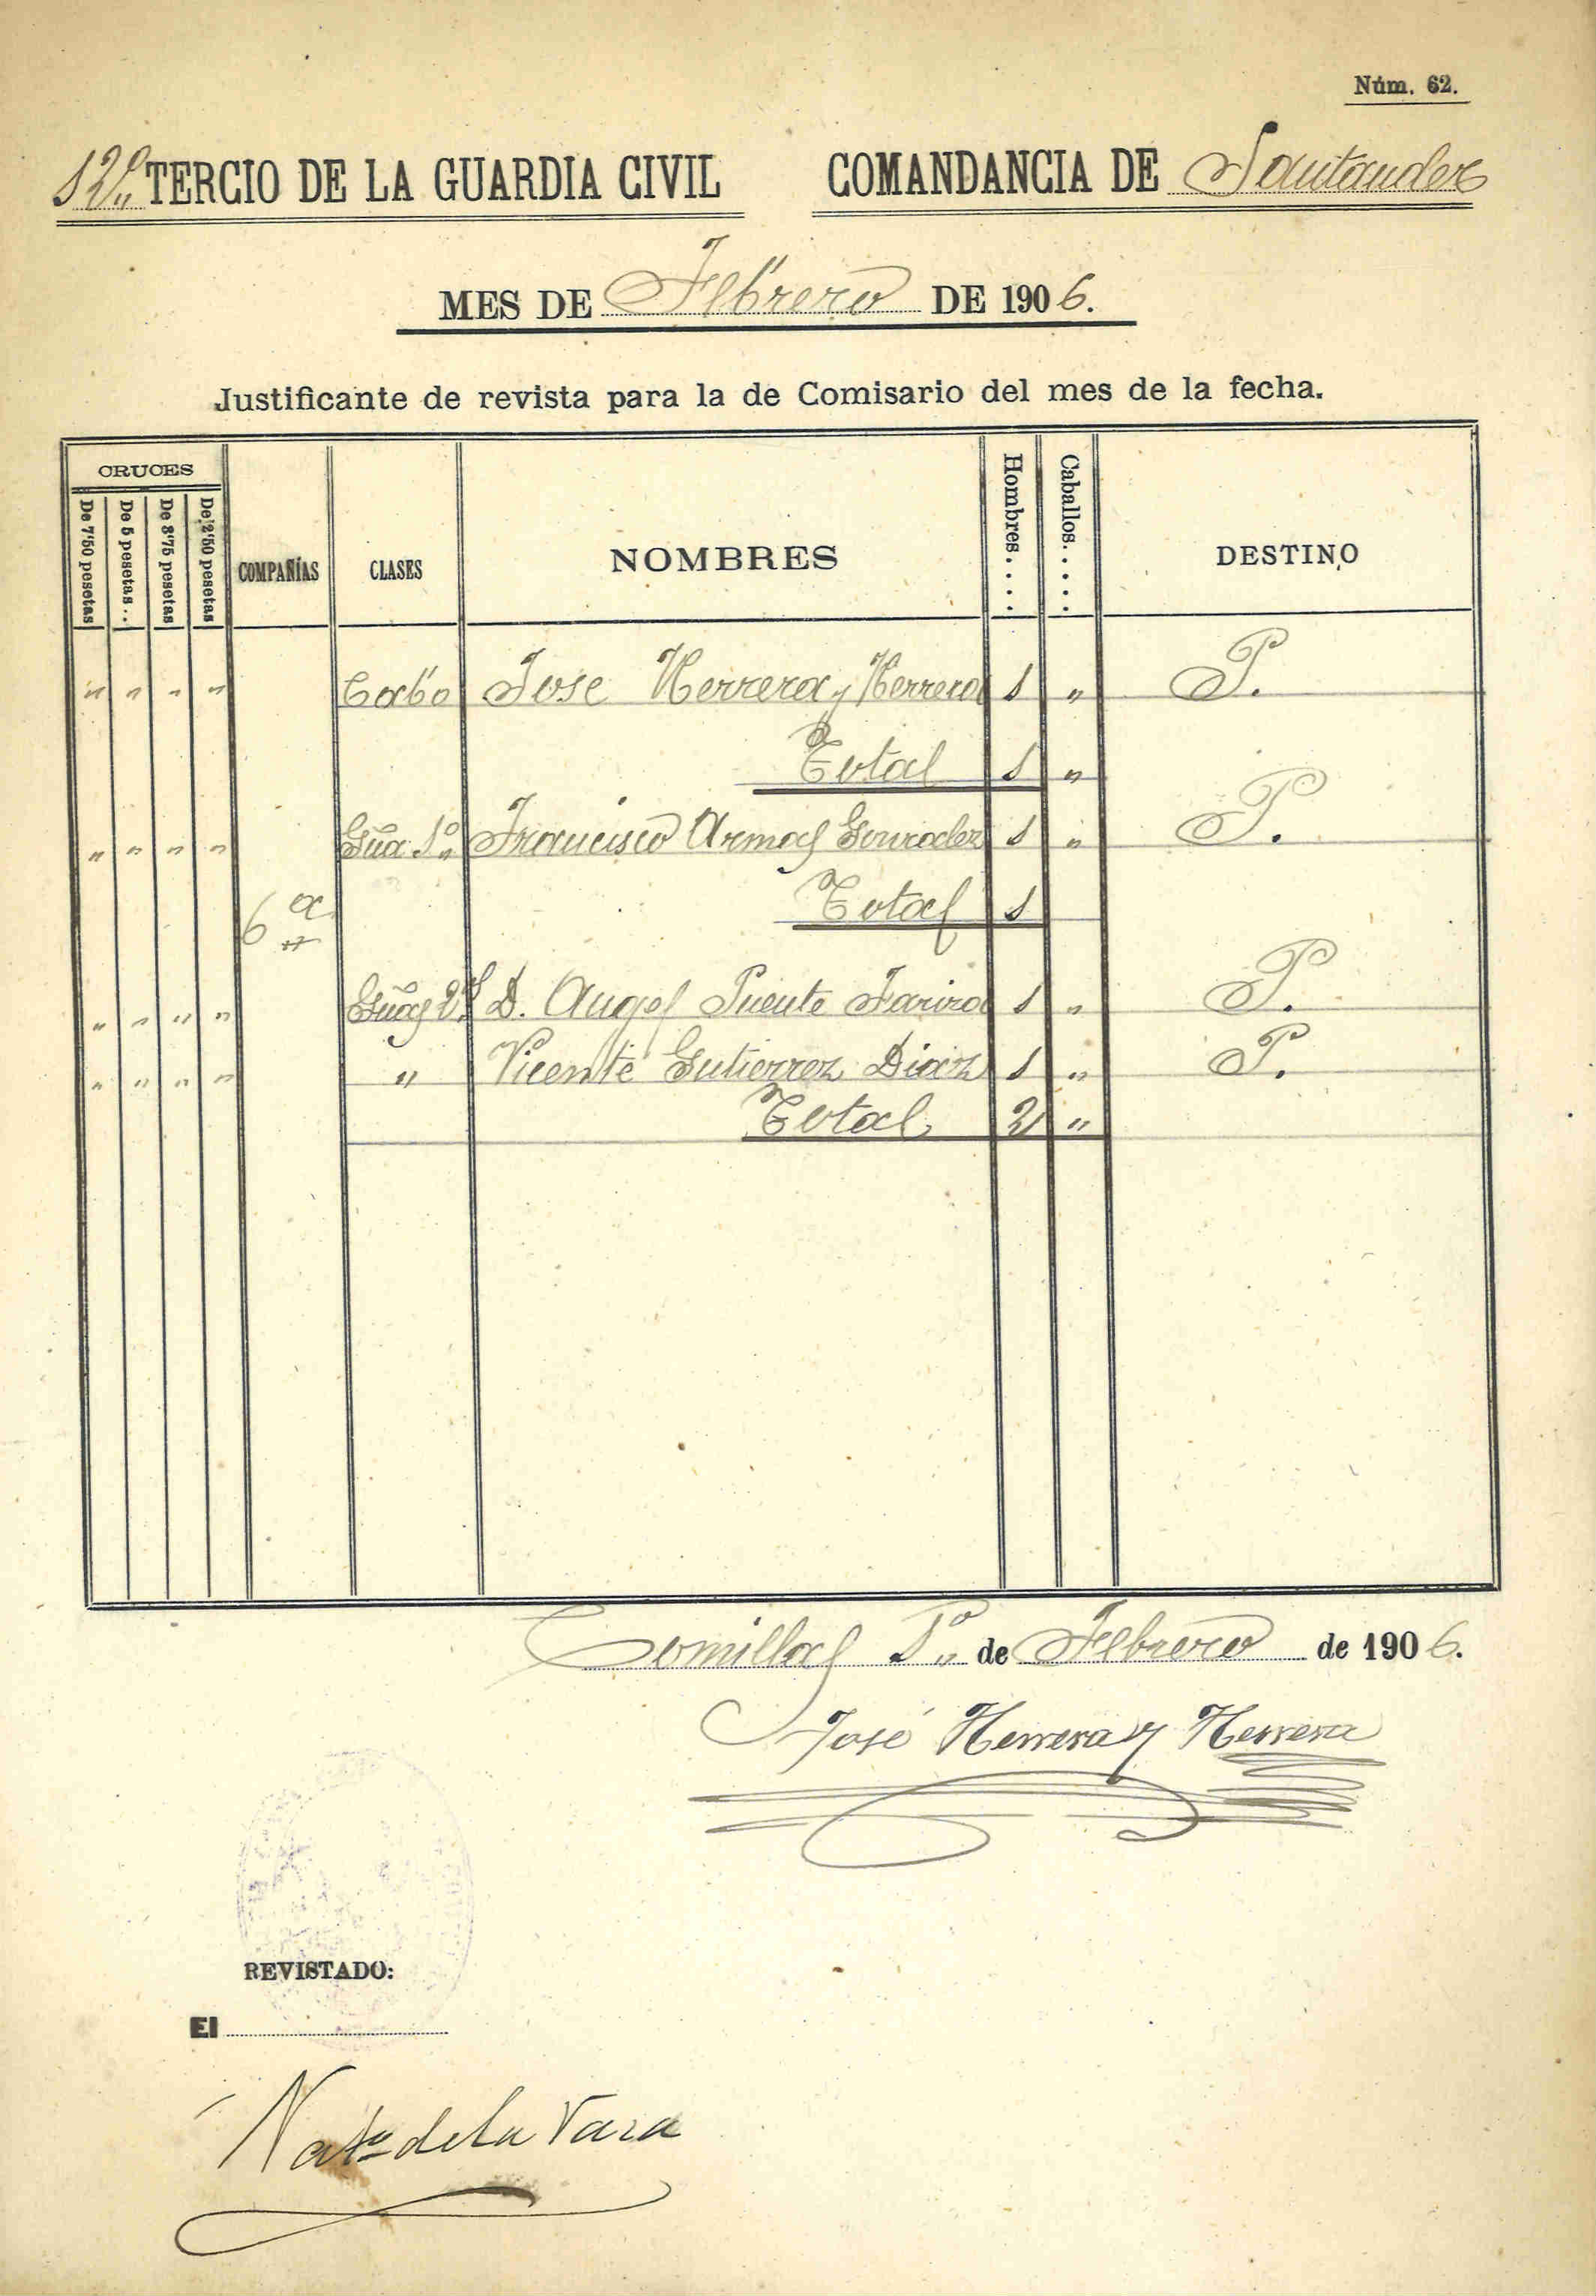 Núm. 62.
12º TERCIO DE LA GUARDIA CIVIL COMANDANCIA DE Santander
MES DE Febrero DE 1906.
Justificante de revista para la de Comisario del mes de la fecha.
CRUCES
De 7'50 pesetas
De 5 pesetas..
De 3'75 pesetas
De 2'50 pesetas
COMPAÑÍAS
CLASES
NOMBRES
Hombres....
Caballos.....
DESTINO
" " " " Cabo Jose Herrera y Herrera 1 " P.
Total 1 "
" " " " Gũa 1º Francisco Armas Gonzalez 1 " P.
Total 1
6ª
" " " " Gũas 2ºs D. Angel Puente Fariza 1 " P.
" " " " " Vicente Gutierrez Diaz 1 " P.
Total 2 "
Comillas 1º de Febrero de 1906.
José Herrera y Herrera
REVISTADO:
El
de la Vara